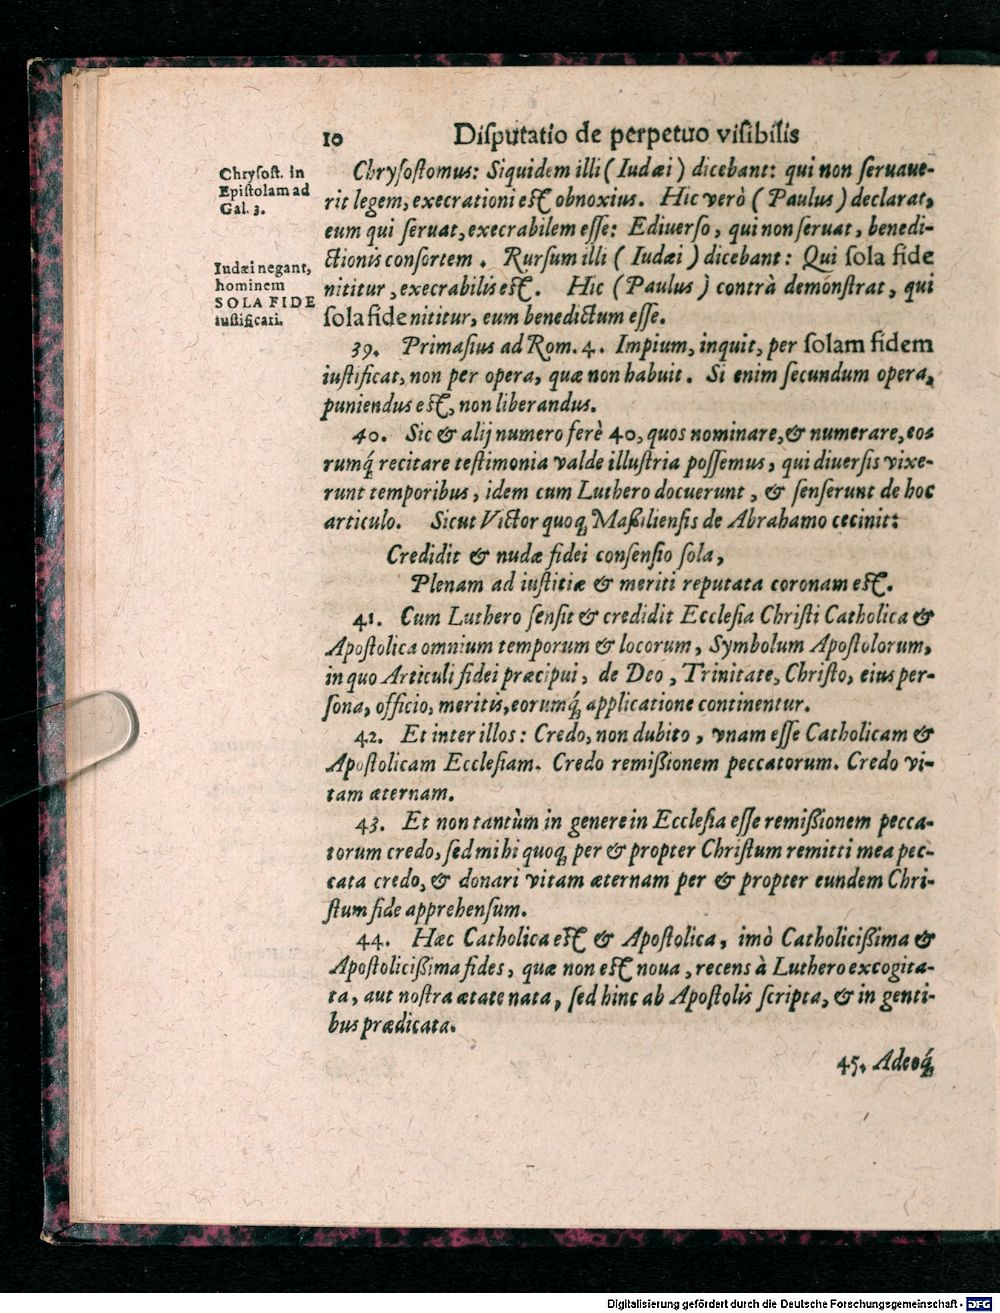 10 Diſputatio de perpetuo viſibilis
Chryſoſt. in
Epiſtolam ad
Gal. 3.
Iudæi negant,
hominem
SOLA FIDE
iuſtificari.
Chryſoſtomus: Siquidem illi (Iudæi) dicebant: qui non ſeruaue-
rit legem, execrationi eſt obnoxius. Hic verò (Paulus) declarat,
eum qui ſeruat, execrabilem eſſe: Ediuerſo, qui non ſeruat, benedi-
ctionis conſortem. Rurſum illi (Iudæi) dicebant: Qui ſola fide
nititur, execrabilis eſt. Hic (Paulus) contrà demonſtrat, qui
ſola fide nititur, eum benedictum eſſe.
39. Primaſius ad Rom. 4. Impium, inquit, per ſolam fidem
iuſtificat, non per opera, quæ non habuit. Si enim ſecundum opera,
puniendus eſt, non liberandus.
40. Sic & alij numero ferè 40, quos nominare, & numerare, eo-
rumq́ recitare teſtimonia valde illuſtria poſſemus, qui diuerſis vixe-
runt temporibus, idem cum Luthero docuerunt, & ſenſerunt de hoc
articulo. Sicut Victor quoq; Maßilienſis de Abrahamo cecinit:
Credidit & nudæ fidei conſenſio ſola,
Plenam ad iuſtitiæ & meriti reputata coronam eſt.
41. Cum Luthero ſenſit & credidit Eccleſia Chriſti Catholica &
Apoſtolica omnium temporum & locorum, Symbolum Apoſtolorum,
in quo Articuli fidei præcipui, de Deo, Trinitate, Chriſto, eius per-
ſona, officio, meritis, eorumq́; applicatione continentur.
42. Et inter illos: Credo, non dubito, vnam eſſe Catholicam &
Apoſtolicam Eccleſiam. Credo remißionem peccatorum. Credo vi-
tam æternam.
43. Et non tantùm in genere in Eccleſia eſſe remißionem pecca-
torum credo, ſed mihi quoq; per & propter Chriſtum remitti mea pec-
cata credo, & donari vitam æternam per & propter eundem Chri-
ſtum fide apprehenſum.
44. Hæc Catholica eſt & Apoſtolica, imò Catholicißima &
Apoſtolicißima fides, quæ non eſt noua, recens à Luthero excogita-
ta, aut noſtra ætate nata, ſed hinc ab Apoſtolis ſcripta, & in genti-
bus prædicata.
45. Adeoq́;
Digitalisierung gefördert durch die Deutsche Forschungsgemeinschaft - DFG